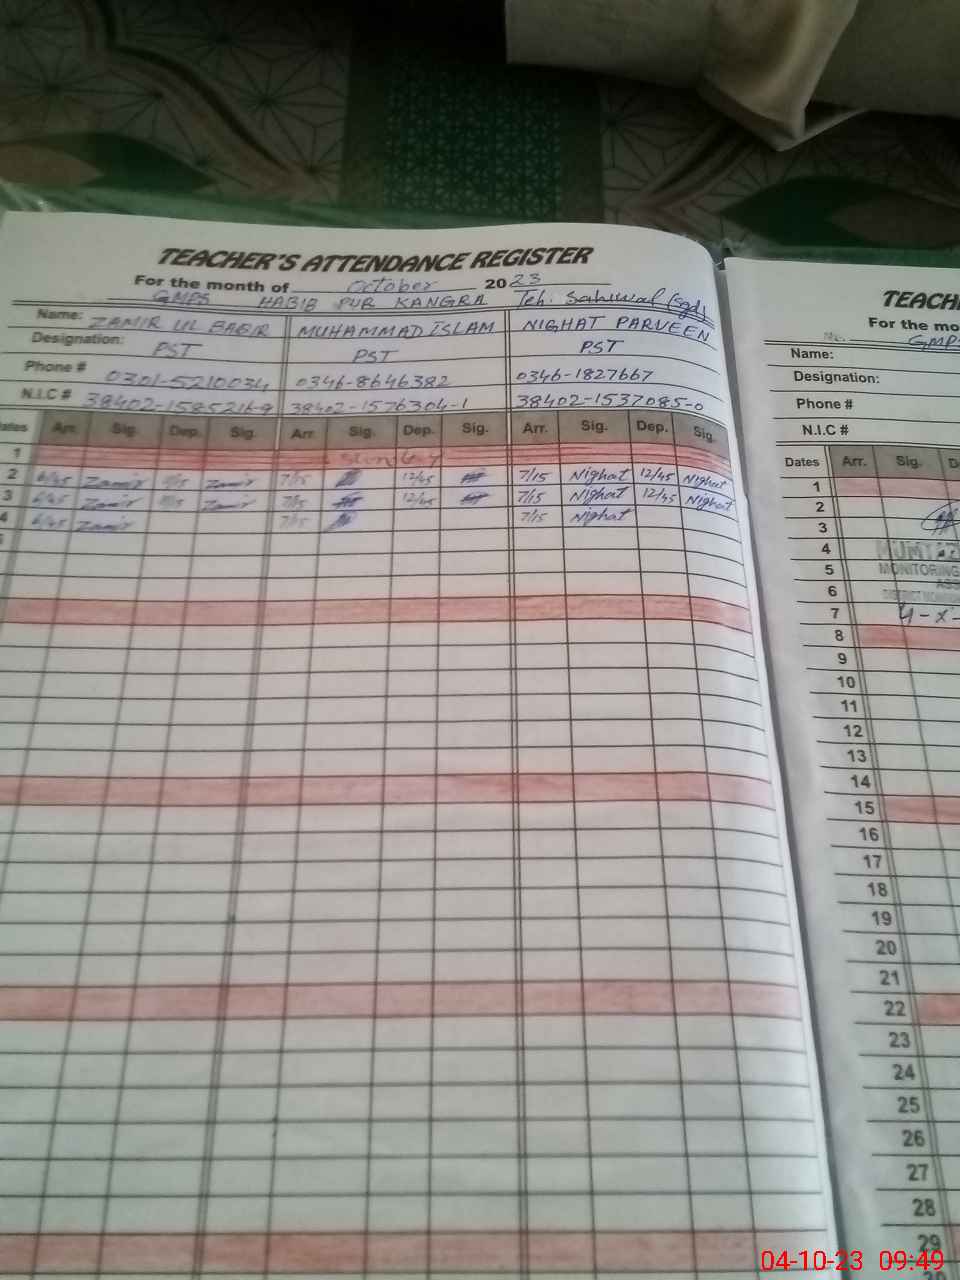 TEACHER'S ATTENDANCE REGISTER
For the month of October 2023
GMPS HABIB PUR KANGRA Teh: Sahiwal (sgd)
Name: ZAMIR UL BAQIR MUHAMMAD ISLAM NIGHAT PARVEEN
Designation: PST PST PST
Phone # 0301-5210034 0346-8646382 0346-1827667
N.I.C # 38402-1585216-9 38402-1576304-1 38402-1537085-0
Dates Arr. Sig. Dep. Sig. Arr. Sig. Dep. Sig. Arr. Sig. Dep. Sig.
1 Sunday
2 6/45 Zamir Zamir 7/15 12/45 7/15 Nighat 12/45 Nighat
3 6/45 Zamir Zamir 7/15 12/45 7/15 Nighat 12/45 Nighat
4 6/45 Zamir 7/15 7/15 Nighat
TEACH
For the mo
GMPS
Name:
Designation:
Phone #
N.I.C #
Dates Arr. Sig. D
1
2
3
4 MUMTAZ
5 MONITORING
6 ASS
DISTRICT MONI
7 4-X-
8
9
10
11
12
13
14
15
16
17
18
19
20
21
22
23
24
25
26
27
28
29
04-10-23 09:49